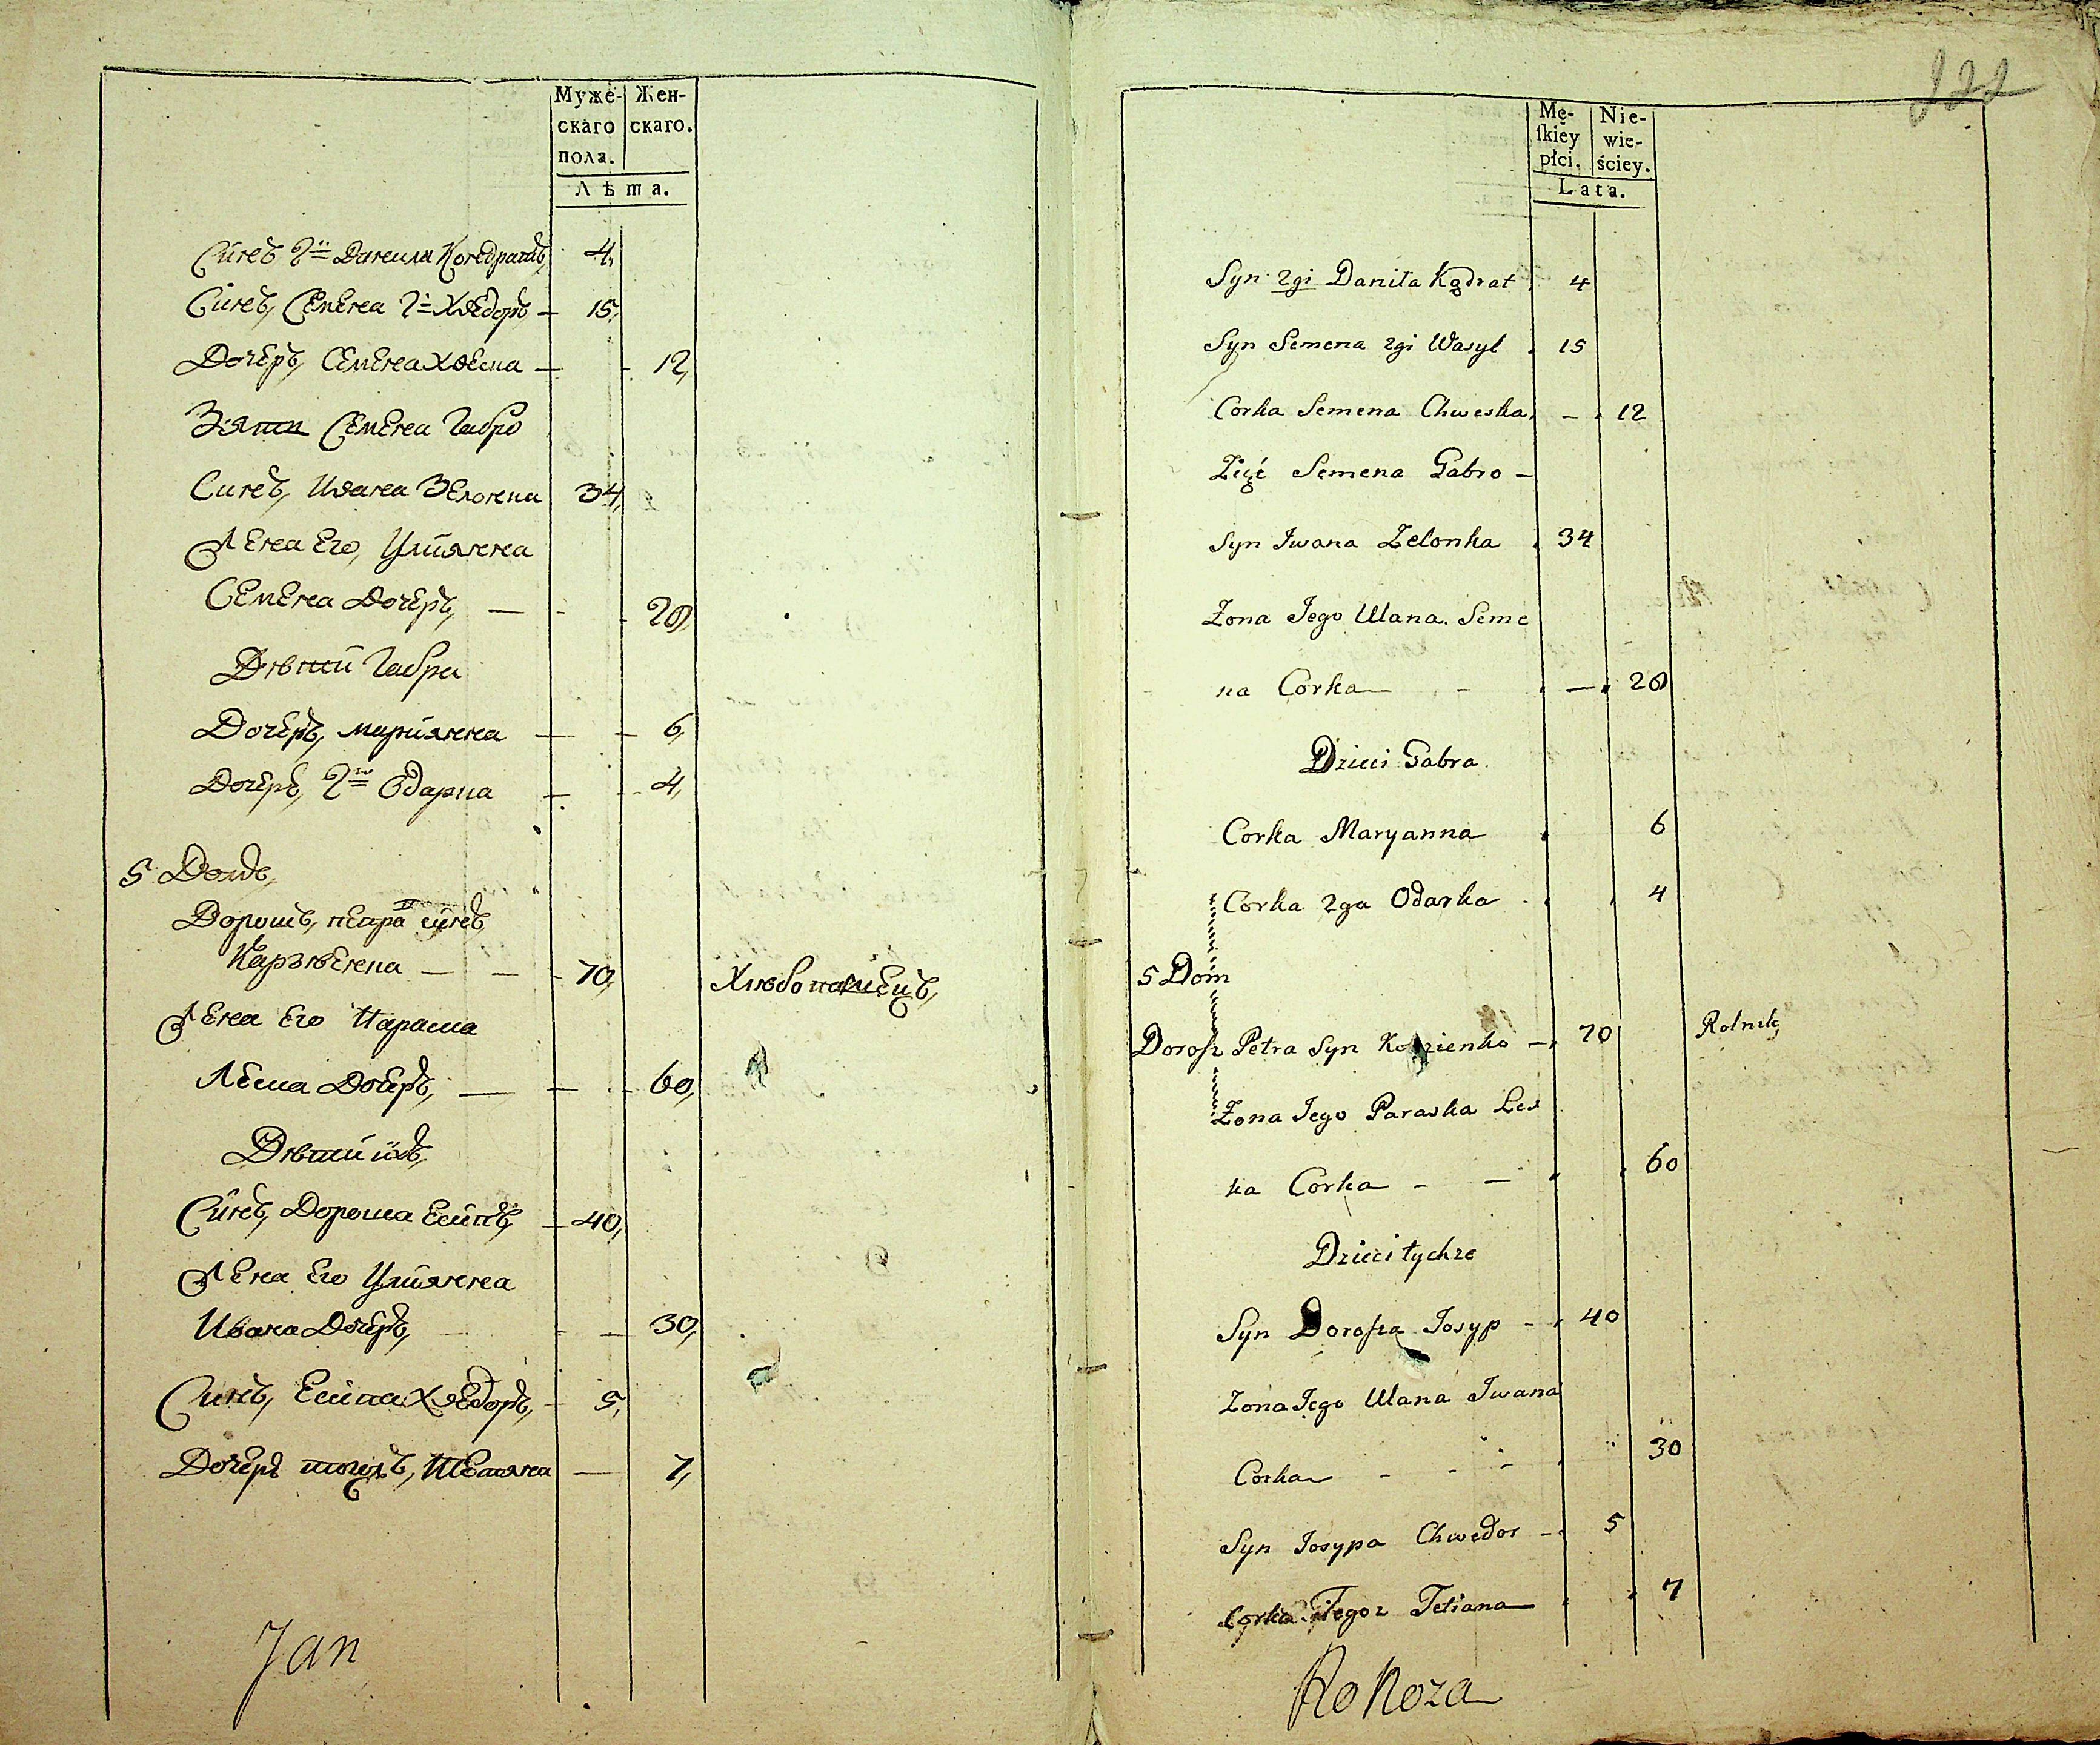 Муже- Жен-
скаго скаго.
пола.
Лѣта.
Сынъ 2й Данила Кондратъ, 4,
Сынъ, Семена 2й Хведоръ 15,
Дочеръ, Семена Хвеска 12,
Зяти Семена Габро
Сынъ, Ивана Зелонка 34,
Жена Его, Улиянна
Семена Дочеръ, 20,
Дѣти Габра
Дочеръ, мариянна 6,
Дочеръ, 2я Одарка 4,
5 Домъ,
Дорошъ, петра сынъ
70, Хлебопашецъ,
Жена Его Параска
Леска Дочеръ, 60,
Дѣти ихъ,
Сынъ, Дороша Есипъ, 40,
Жена Его Улиянна
Ивана Дочеръ, 30,
Сынъ, Есипа Хведоръ, 5,
Дочеръ тогожъ, Тетияна 7,
Jan
122
Mę- Nie-
ſkiey wie-
płci. ściey.
Lata.
Syn 2gi Daniła Kądrat 4
Syn Semena 2gi Wasyl 15
Corka Semena Chweska 12
Zięć Semena Gabro
Syn Iwana Zelonka 34
Zona Jego Ulana Seme
na Corka 20
Dzieci Gabra
Corka Maryanna 6
Corka 2ga Odarka 4
5 Dom
Doroſz Petra Syn 70 Rolnik
Zona Jego Paraska Les
ka Corka 60
Dzieci tychże
Syn Doroſza Josyp 40
Zona Jego Ulana Iwana
Corka 30
Syn Josypa Chwedor 5
Corka Tegoz Tetiana 7
Rokoza